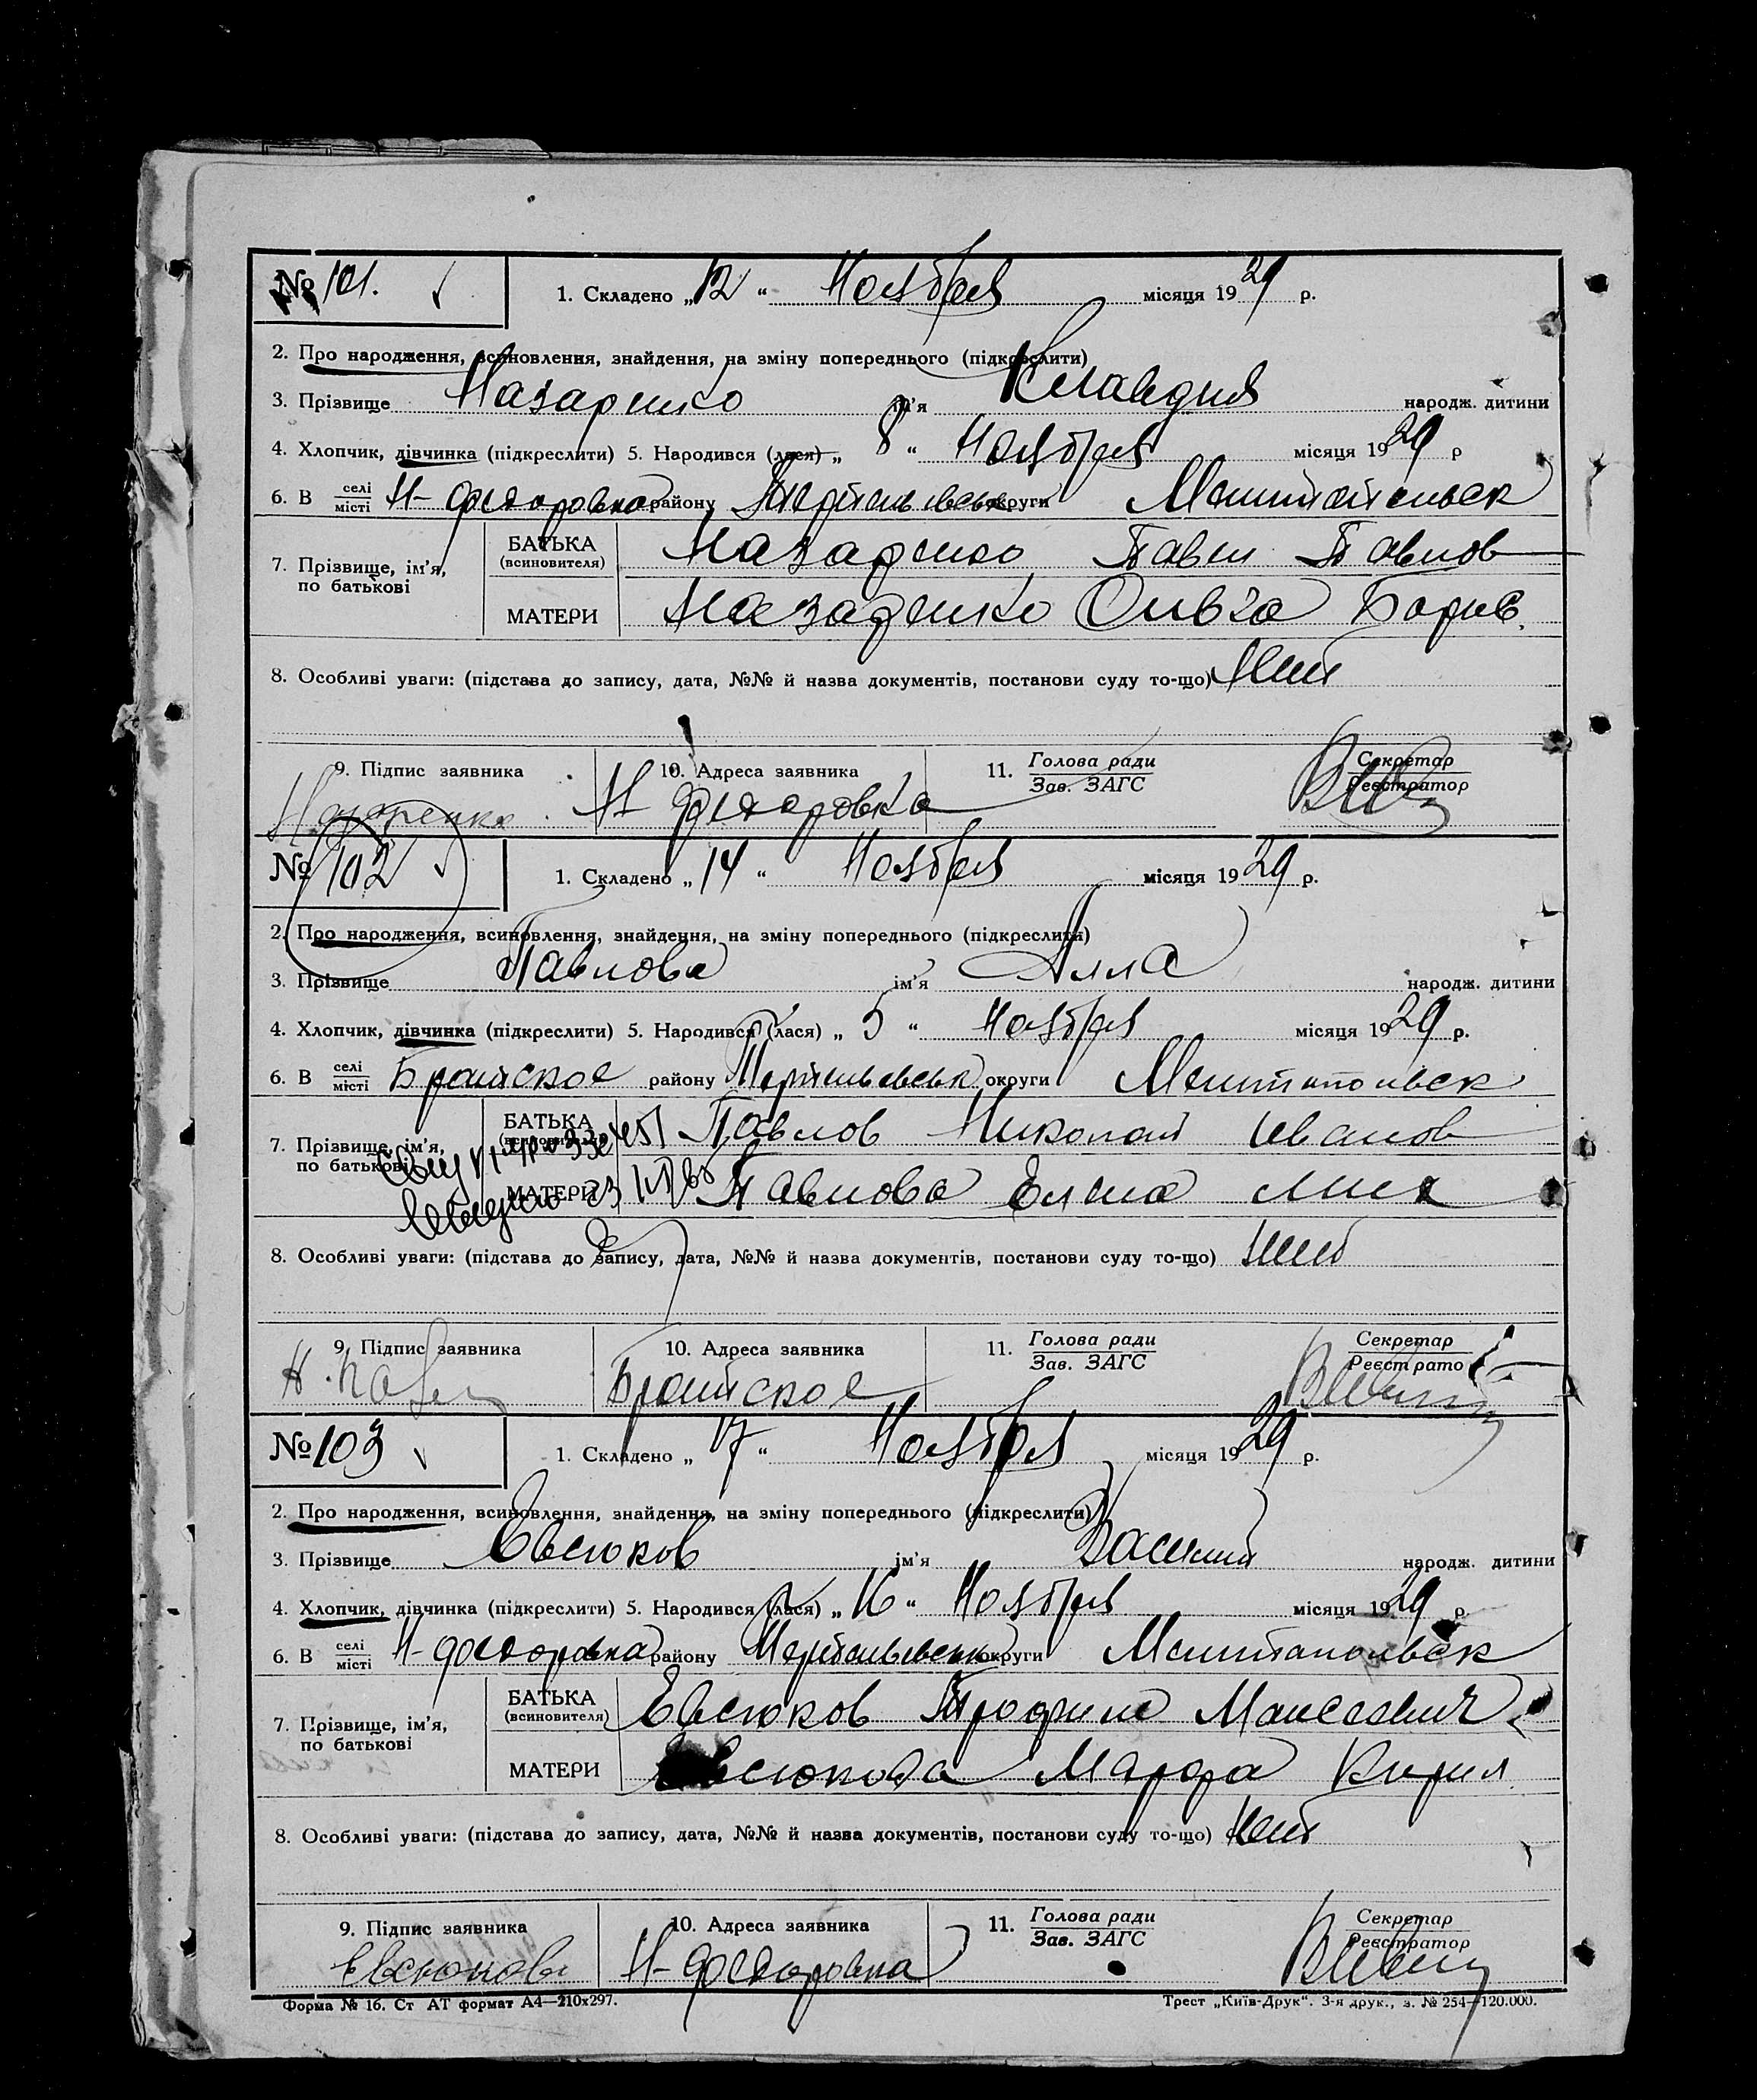 № 101. 1. Складено „12“ Ноября місяця 1929 р.
2. Про народження, всиновлення, знайдення, на зміну попереднього (підкреслити)
3. Прізвище Назаренко ім'я Клавдия народж. дитини
4. Хлопчик, дівчинка (підкреслити) 5. Народився (лася) „8“ Ноября місяця 1929 р
6. В селі місті Н-Федоровка району округи Мелитопольск
7. Прізвище, ім'я, по батькові БАТЬКА (всиновителя) Назаренко Павел Павлов
МАТЕРИ Назаренко Ольга Борис.
8. Особливі уваги: (підстава до запису, дата, №№ й назва документів, постанови суду то-що) Нет
9. Підпис заявника 10. Адреса заявника 11. Голова ради Зав. ЗАГС Секретар Реєстратор
Назаренко Н-Федоровка
№ 102 1. Складено „14“ Ноября місяця 1929 р.
2. Про народження, всиновлення, знайдення, на зміну попереднього (підкреслити)
3. Прізвище Павлова ім'я Алла народж. дитини
4. Хлопчик, дівчинка (підкреслити) 5. Народився (лася) „5“ Ноября місяця 1929 р.
6. В селі місті Братское району округи Мелитопольск
7. Прізвище, ім'я, по батькові БАТЬКА (всиновителя) Павлов Николай Иванов
МАТЕРИ Павлова Елена
8. Особливі уваги: (підстава до запису, дата, №№ й назва документів, постанови суду то-що) Нет
9. Підпис заявника 10. Адреса заявника 11. Голова ради Зав. ЗАГС Секретар Реєстратор
Братское
№ 103 1. Складено „17“ Ноября місяця 1929 р.
2. Про народження, всиновлення, знайдення, на зміну попереднього (підкреслити)
3. Прізвище Евсюков ім'я Василий народж. дитини
4. Хлопчик, дівчинка (підкреслити) 5. Народився (лася) „16“ Ноября місяця 1929 р.
6. В селі місті Н-Федоровка району округи Мелитопольск
7. Прізвище, ім'я, по батькові БАТЬКА (всиновителя) Евсюков Трофим Моисеевич
МАТЕРИ Евсюкова Марфа Кирил
8. Особливі уваги: (підстава до запису, дата, №№ й назва документів, постанови суду то-що) Нет
9. Підпис заявника 10. Адреса заявника 11. Голова ради Зав. ЗАГС Секретар Реєстратор
Евсюков Н-Федоровка
Форма № 16. Ст АТ формат А4—210х297. Трест „Київ-Друк“. 3-я друк., з. № 254—120.000.